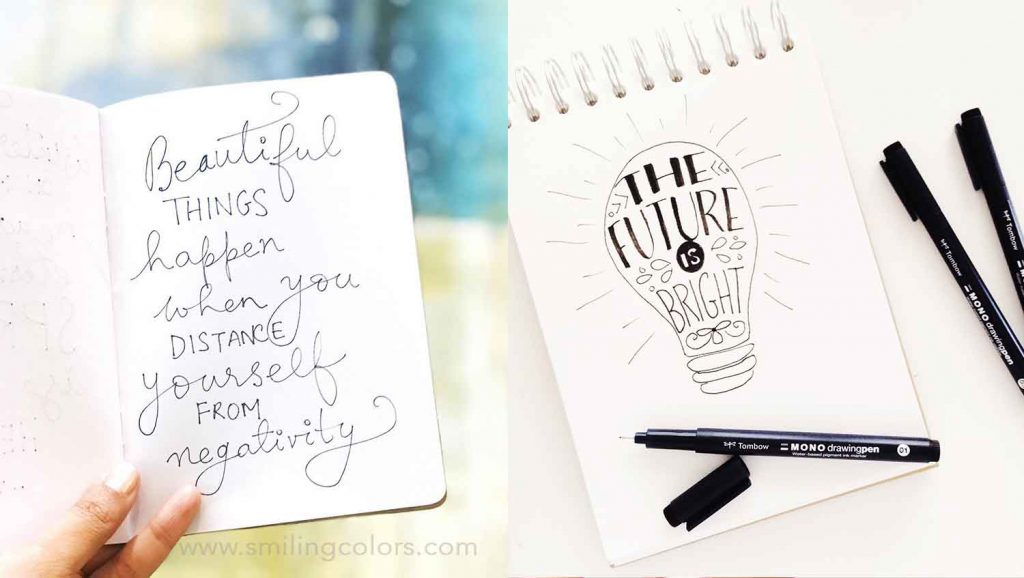 Beautiful
THINGS
happen
when you
DISTANCE
yourself
FROM
negativity
www.smilingcolors.com
THE
FUTURE
IS
BRIGHT
Tombow
MONO drawingpen
Tombow
MONO drawingpen
Water-based pigment ink marker
01
Tombow